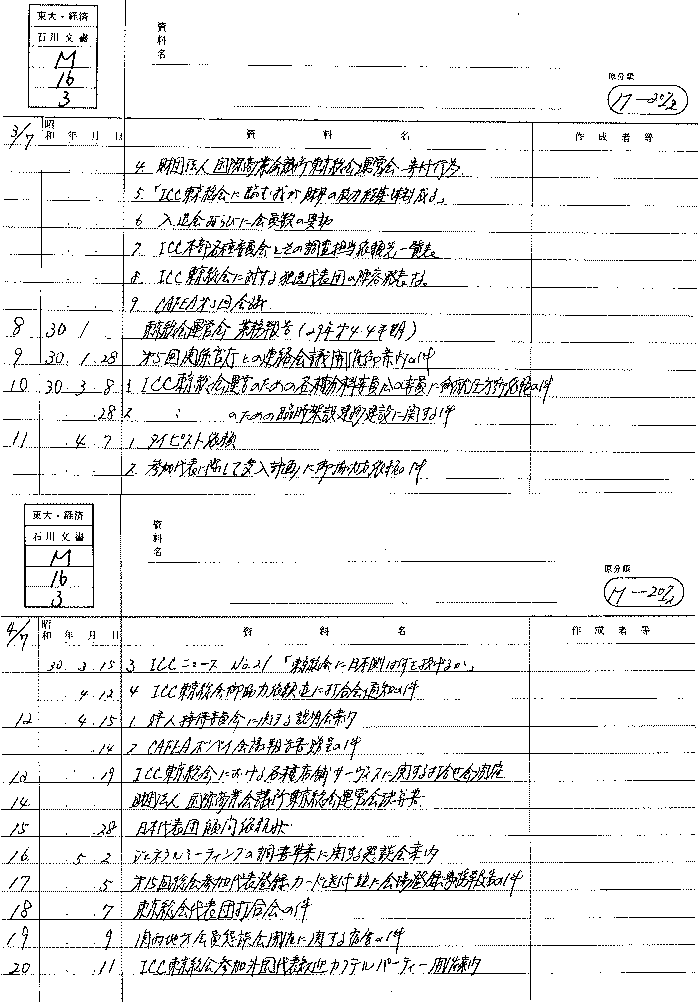 東大・経済
石川文書
M
16
3
資料名
原分類
M-20/2
3/7 昭和 年 月 日 資料名 作成者等
4 財団法人国際商業会議所東京総会運営会寄付行為
5 「ICC東京総会に臨む我が財界の協力態勢成る」
6 入退会ならびに会員数の異動
7 ICC本部各種委員会とその調査担当依頼先一覧表
8 ICC東京総会に対する 代表団の陣容発表さる
9 CAFEA 回会議
8 30 1 東京総会運営会 業務報告(29年才4.4半期)
9 30.1.28 才5回関係官庁との連絡会議開催御案内の件
10 30 3 8 1 ICC東京総会運営のための各種分科委員会の委員に の件
.28 2 〃 のための臨時架設建物建設に関する件
11 .4 7 1 タイピスト依頼
2 参加代表に際して受入計画に御協力依頼の件
東大・経済
石川文書
M
16
3
資料名
原分類
M-20/2
4/7 昭和 年 月 日 資料名 作成者等
30.3.15 3 ICCニュース No.21 「東京総会に日本側は何を提げるか」
.4.12 4 ICC東京総会御協力依頼並に打合会通知の件
12 .4.15 1 婦人接待委員会に関する説明会案内
.14 2 CAFEAボンベイ会議報告書贈呈の件
13 .19 ICC東京総会における各種店舗サービスに関する打合せ会開催
14 財団法人国際商業会議所東京総会運営会決算書
15 .28 日本代表団顧問依頼状
16 .5 2 ジェネラルミーティングの調書草案に関する懇談会案内
17 .5 才15回総会参加代表登録カード送付並に会場登録事務 の件
18 .7 東京総会代表団打合会の件
19 .9 関西地方会員懇談会開催に関する 件
20 .11 ICC東京総会参加外国代表歓迎カクテルパーティー開催案内